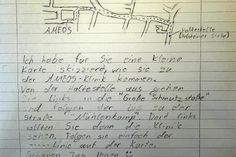 AMEOS
Haltestelle
Ich habe für Sie eine kleine
Karte skizziert, wie sie zu
der AMEOS-Klinik kommen.
Von der Haltestelle aus gehen
links in die "Große Schmutzstraße"
und folgen der bis zu der
Straße "Mühlenkamp". Dort links
sollten Sie dann die Klinik
sehen. Folgen sie einfach der
linie auf der Karte.